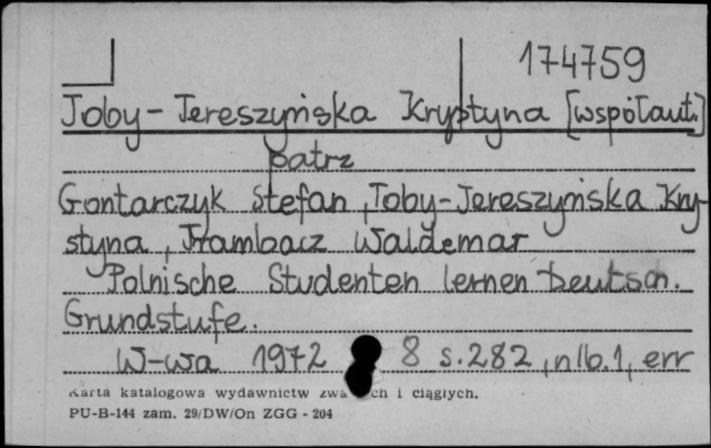 174759
Joby-Tereszyńska Krystyna [współaut.]
patrz
Gontarczyk Stefan, Joby-Tereszyńska Kry-
styna, Trambacz Waldemar
Polnische Studenten lernen Deutsch.
Grundstufe.
W-wa 1972 8 s. 282, nlb. 1, err
Karta katalogowa wydawnictw i ciągłych.
PU-B-144 zam. 29/DW/On ZGG - 204